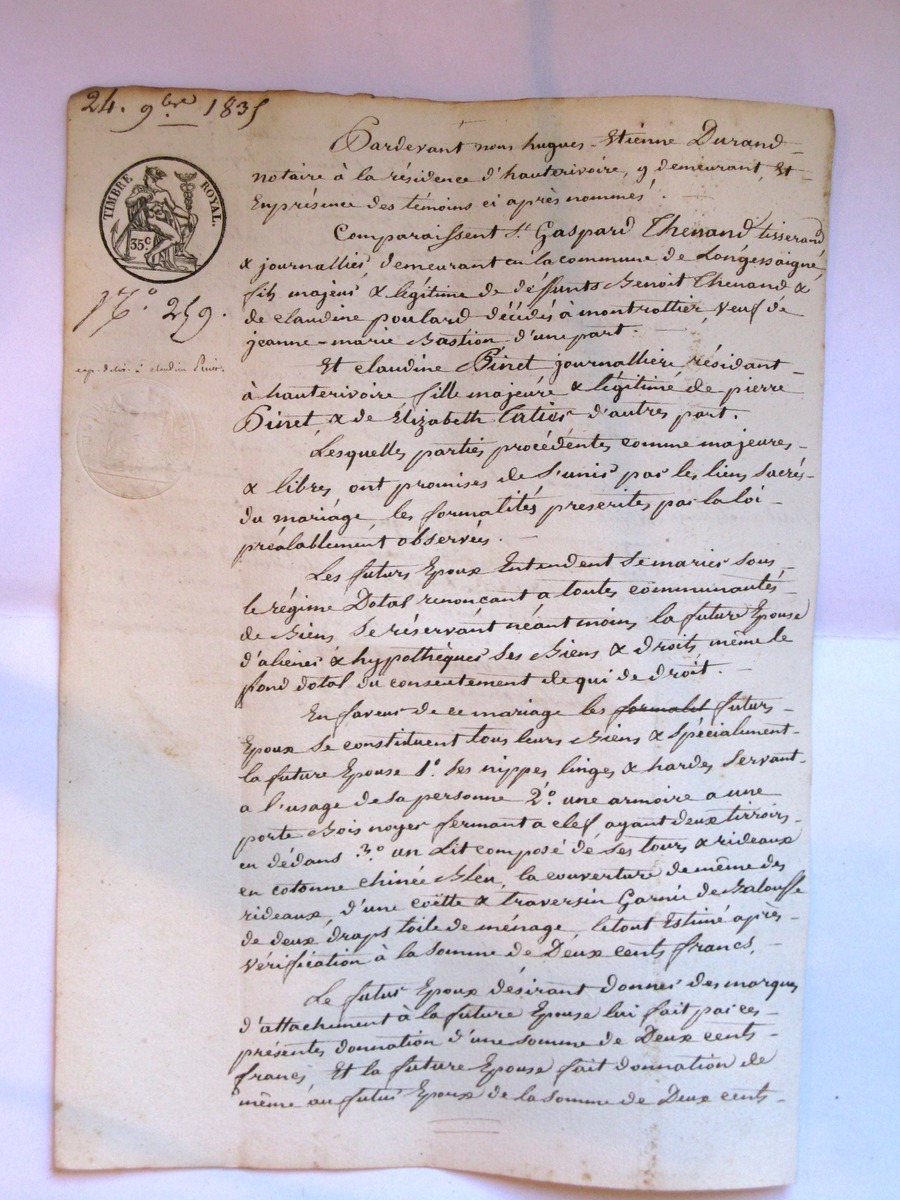 24. 9bre 1835
TIMBRE ROYAL.
35c
No 259.
exp. délivr. à claudine Pinet.
Pardevant nous hugues-Etienne Durand
notaire à la résidence d'hauterivoire, y demeurant, Et
Enprésence des témoins ci après nommés.
Comparaissent Sr Gaspard Thenand tisserand
& journallier, demeurant en la commune de Longessaigne,
fils majeur & légitime de deffunts Benoit Thenand &
de claudine poulard décédés à montrottier, veuf de
jeanne-marie Bastion d'une part.
Et claudine Pinet journallière, résidant
à hauterivoire fille majeure & légitime de pierre
Pinet, & de Elizabeth d'autres part.
Lesquelles parties procédentes comme majeures
& libres, ont promises de s'unir par les liens sacrés
du mariage, les formalités prescrites par la loi
préalablement observées.
Les futurs Epoux Entendent se marier sous
le régime Dotal renonçant a toutes communautés
de Biens, se réservant néantmoins la future Epouse
d'aliéner & hypothèquer ses Biens & droits même le
fond dotal du consentement de qui de droit.
En faveur de ce mariage les formalit futurs
Epoux se constituent tous leurs Biens & spécialment
la future Epouse 1o. ses nippes linges & hardes servant
a l'usage de sa personne 2o. une armoire a une
porte Bois noyer fermant a clef ayant deux tirroirs
en dédans 3o. un Lit composé de ses tours & rideaux
en cotonne chinée Bleu, la couverture de même des
rideaux, d'une coëtte & traversin Garnie de Balouffe
de deux draps toile de ménage, le tout Estimé après
vérification à la somme de Deux cents francs.
Le futur Epoux désirant donner des marques
d'attachement à la future Epouse lui fait par ces
présentes donnation d'une somme de Deux cents
francs Et la future Epouse fait donnation de
même au futur Epoux de la somme de Deux cents